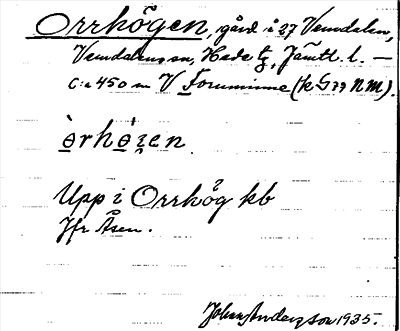 Orrhögen, gård i 27 Vemdalen,
Vemdalens sn, Hede tg, Jämtl. l. —
c:a 450 m V Fornminne (k G 79 NM).
òrhó̱ʒen
Upp i Orrhög kb
Jfr Åsen.
Johan Andersson 1935